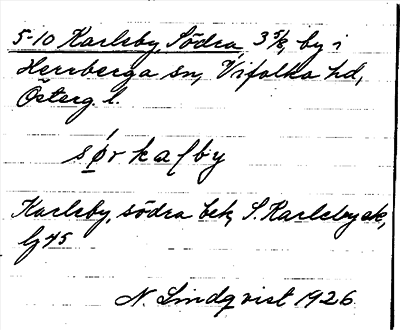 5-10 Karleby, Södra, 3 5/8, by i
Herrberga sn, Vifolka hd,
Österg. l.
sørkalby
Karleby, södra bek, S. Karleby ek,
lj 45
N. Lindqvist 1926